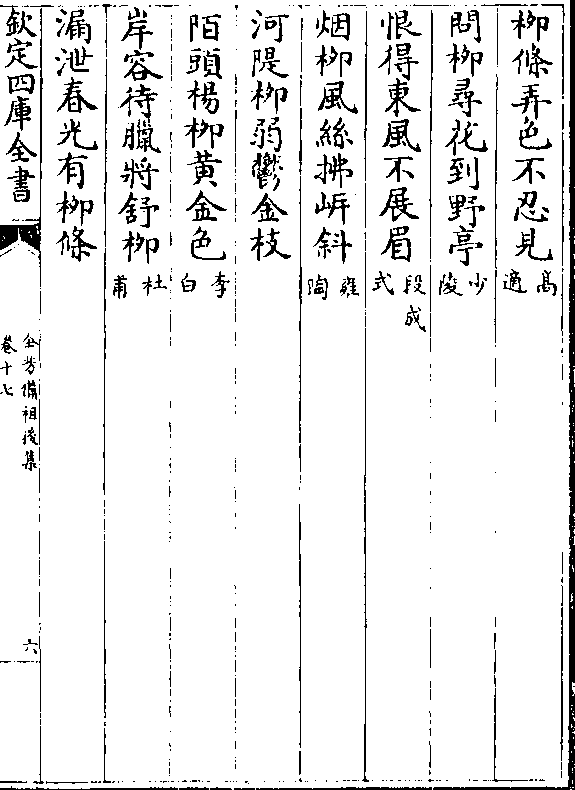 柳條弄色不忍見高適
問柳尋花到野亭少陵
恨得東風不展眉段成式
烟柳風絲拂岍斜雍陶
河隄柳弱鬱金枝
陌頭楊柳黄金色李白
岸容待臘將舒柳杜甫
漏泄春光有柳條
欽定四庫全書
全芳備祖後集
卷十七
六